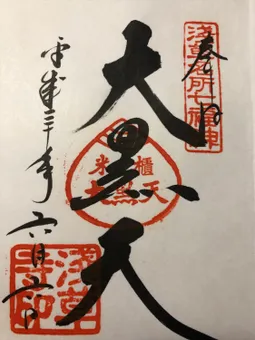 浅草名所七福神
奉拝
大黒天
米櫃
大黒天
平成三十年
六月 日
浅草
寺印